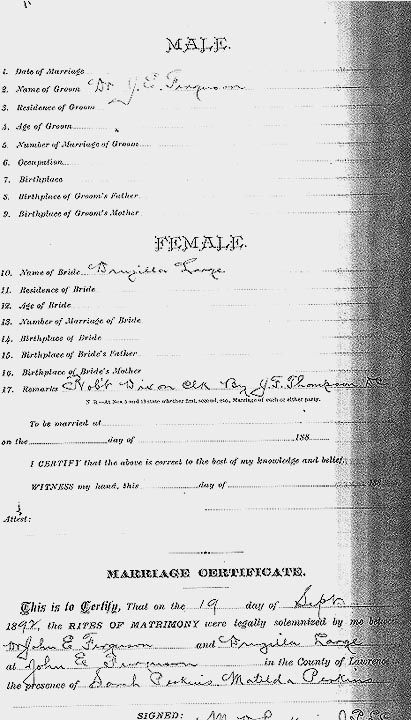 MALE.
1. Date of Marriage
2. Name of Groom Dr J. E. Ferguson
3. Residence of Groom
4. Age of Groom
5. Number of Marriage of Groom
6. Occupation
7. Birthplace
8. Birthplace of Groom's Father
9. Birthplace of Groom's Mother
FEMALE.
10. Name of Bride Druzilla Large
11. Residence of Bride
12. Age of Bride
13. Number of Marriage of Bride
14. Birthplace of Bride
15. Birthplace of Bride's Father
16. Birthplace of Bride's Mother
17. Remarks Robt Dixon Clk By J. F. Thompson DC
N. B.—At Nos. 5 and 13 state whether first, second, etc., Marriage of each or either party.
To be married at
on the day of 188
I CERTIFY that the above is correct to the best of my knowledge and belief.
WITNESS my hand, this day of 18
Attest:
MARRIAGE CERTIFICATE.
This is to Certify, That on the 19 day of Sept
1892, the RITES OF MATRIMONY were legally solemnized by me
Dr John E Ferguson and Druzilla Large
at John E Ferguson in the County of Lawrence
the presence of Sarah Perkins Matilda Perkins
SIGNED: